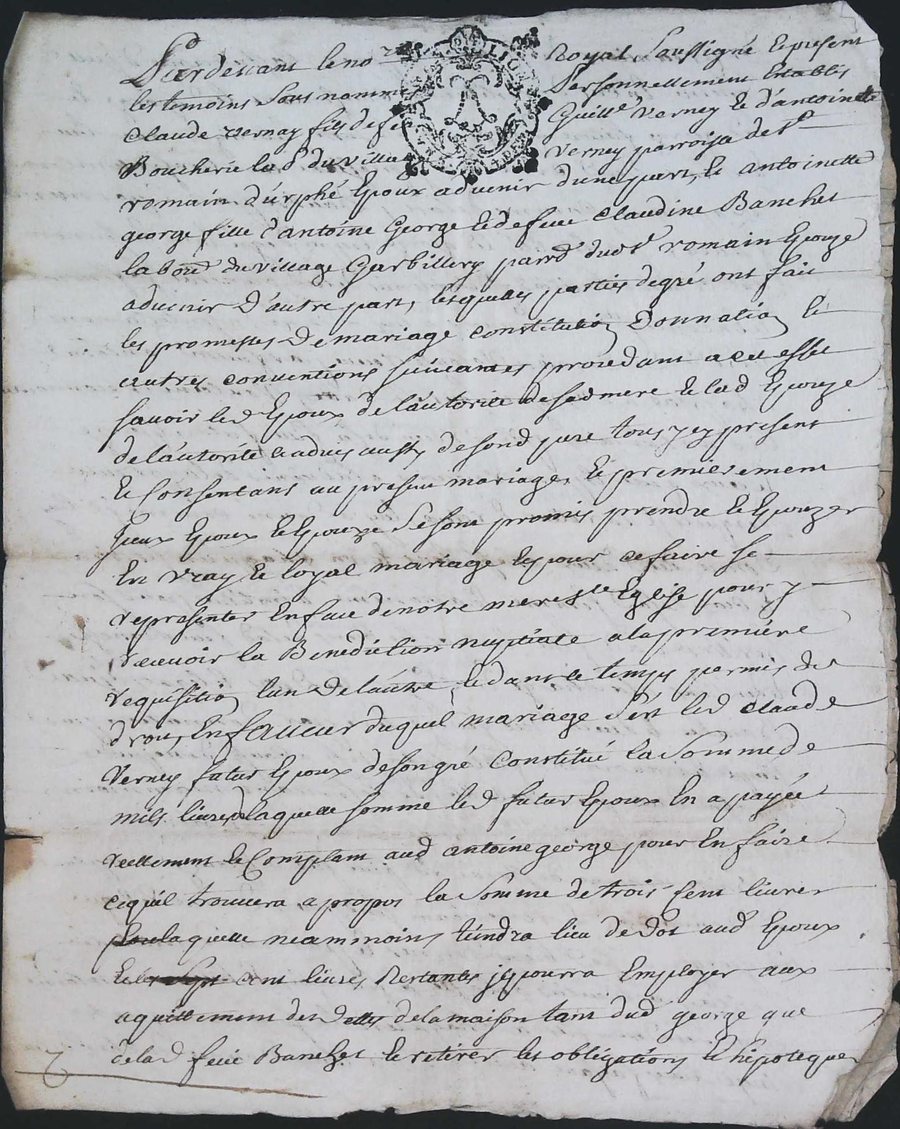 Pardevant le no.re Royal Soussigné & present
les temoins sous nommés Personnellement Etablis
Claude vernay fils de feu Guill.e verney et d'antoinette
Boucherie lab.r du village verney parroise de S.t
romain d'urphé Epoux advenir d'une part, Et antoinette
george fille d'antoine George et de feue Claudine Banchet
labour.r du village Garbillery parr.e dud S.t romain Epouze
advenir d'autre part, lesquelles parties de gré ont fait
les promesses de mariage constitution Donnation et
autres conventions suivantes procedant a cet effet
savoir led Epoux de l'autorité de sad mere Et lad Epouze
de l'autorité et advis aussy de sond pere tous icy present
Et Consentans au present mariage, Et premierement
Iceux Epoux et Epouze se sont promis prendre et Epouzer
En vray et loyal mariage Et pour ce faire se
representer En face de notre mere S.te Eglise pour y
recevoir la Benediction nuptiale a la premiere
requisition l'un de l'autre, et dans le temps permis de
droit, En faveur duquel mariage s'est led Claude
Verney futur Epoux de son gré Constitué la somme de
mils livres laquelle somme led futur Epoux En a payée
reellement et Comptant aud antoine george pour En faire
ce qu'il trouvera a propos la somme de trois Cent livres
laquelle neammoins tiendra lieu de Dot aud Epoux
Et les sept cent livres Restantes il pourra Employer aux
aquittement des dettes de la maison tant dud george que
de lad feue Banchet et retirer les obligations et hipoteques